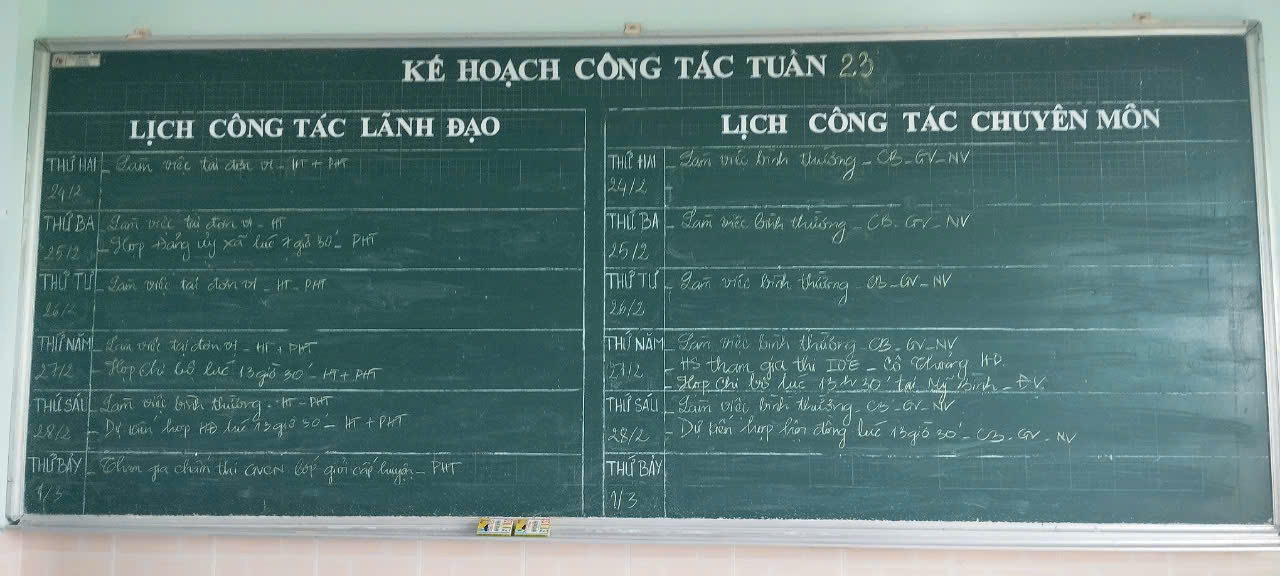 KẾ HOẠCH CÔNG TÁC TUẦN 23
LỊCH CÔNG TÁC LÃNH ĐẠO
THỨ HAI - Làm việc tại đơn vị - HT + PHT
24/2
THỨ BA - Làm việc tại đơn vị - HT
25/2 - Họp Đảng ủy xã lúc 7 giờ 30' - PHT
THỨ TƯ - Làm việc tại đơn vị - HT - PHT
26/2
THỨ NĂM - Làm việc tại đơn vị - HT + PHT
27/2 - Họp Chi bộ lúc 13 giờ 30' - HT + PHT
THỨ SÁU - Làm việc bình thường - HT - PHT
28/2 - Dự kiến họp HĐ lúc 13 giờ 30' - HT + PHT
THỨ BẢY - Tham gia chấm thi GVCN lớp giỏi cấp huyện - PHT
1/3
LỊCH CÔNG TÁC CHUYÊN MÔN
THỨ HAI - Làm việc bình thường - CB - GV - NV
24/2
THỨ BA - Làm việc bình thường - CB - GV - NV
25/2
THỨ TƯ - Làm việc bình thường - CB - GV - NV
26/2
THỨ NĂM - Làm việc bình thường - CB - GV - NV
27/2 - HS tham gia thi IOE - Cô Thương HD
- Họp Chi bộ lúc 13 30' tại Mỹ Bình - ĐV
THỨ SÁU - Làm việc bình thường - CB - GV - NV
28/2 - Dự kiến họp hội đồng lúc 13 giờ 30' - CB - GV - NV
THỨ BẢY
1/3